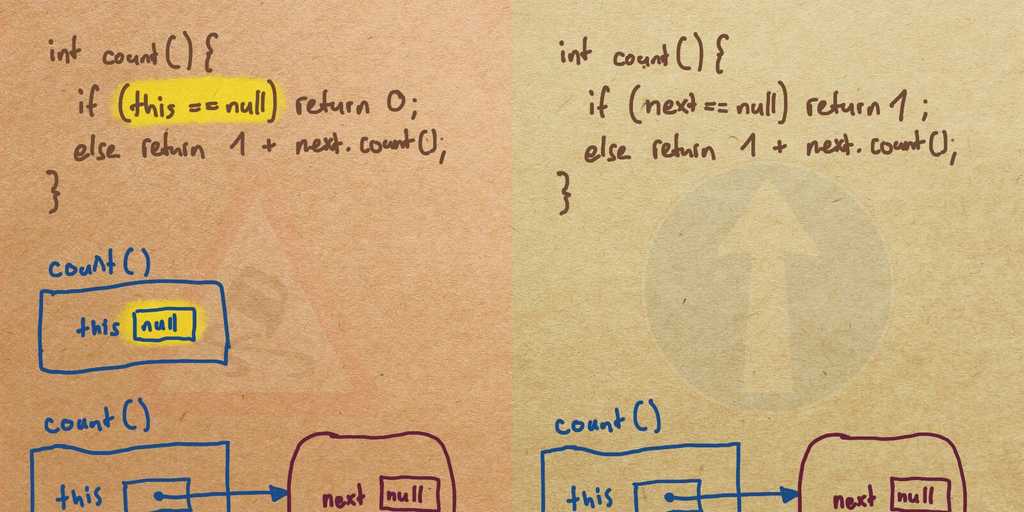 int count() {
if (this == null) return 0;
else return 1 + next.count();
}
count()
this null
count()
this next null
int count() {
if (next == null) return 1;
else return 1 + next.count();
}
count()
this next null